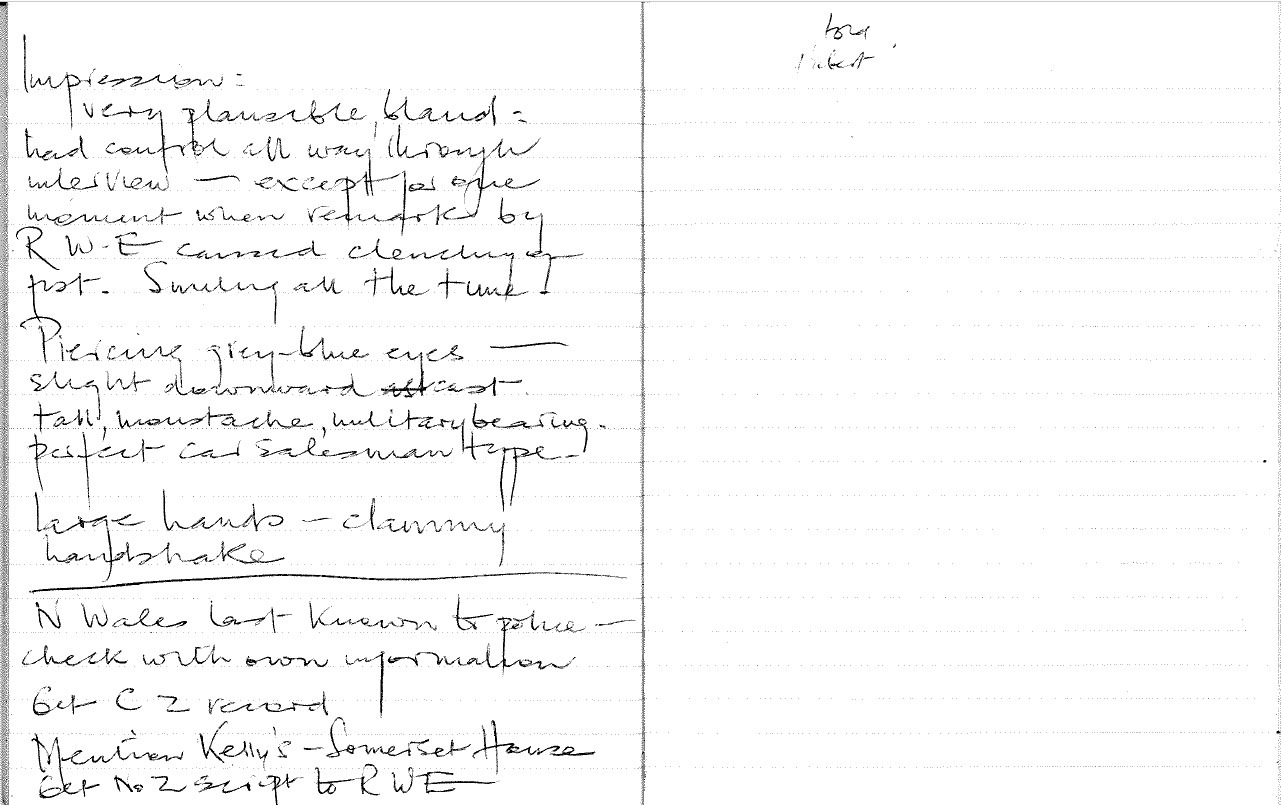 Impression:
very plausible, bland:
had control all way through
interview — except for one
moment when remark by
R W-E caused clenching of
fist. Smiling all the time!
Piercing grey-blue eyes —
slight downward cast.
tall, moustache, military bearing.
perfect car salesman type.
Large hands — clammy
handshake
N Wales last known to police —
check with own information
Get C 2 record
Mention Kelly's - Somerset House
Get No 2 script to R W E
told